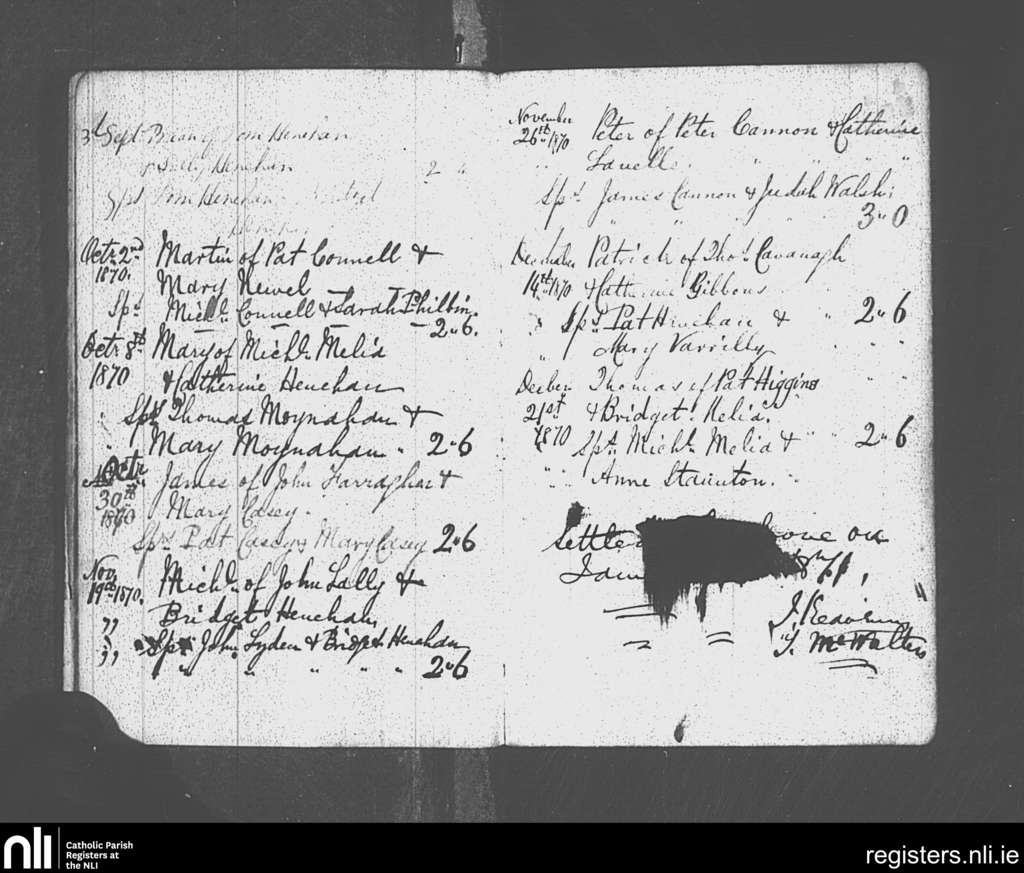 3d Sept Brian of Tom Henehan
& Sally Henehan 2
Sps Tom Henehan Bridget
Henehan
Octr 2nd Martin of Pat Connell &
1870. Mary Newel
Sps. Michl. Connell & Sarah Philbin.
2"6.
Octr 8th Mary of Michl. Melia
1870 & Catherine Henehan
Sps Thomas Moynahan &
Mary Moynahan " 2"6
Octr James of John Farragher &
30th Mary Casey.
1870
Sps Pat Casey & Mary Casey 2"6
Nov. Michl. of John Lally &
19th 1870. Bridget Henehan,
" Sps John Lyden & Bridget Henehan
" " " " " 2"6
November Peter of Peter Cannon & Catherine
26th 1870 Lavelle. " " "
Sps. James Cannon & Judah Walsh;
3"0
December Patrick of Thos. Cavanagh
14th 1870 & Catherine Gibbons
" Sps Pat Henehan & " 2"6
" Mary Varrilly " " "
Decber. Thomas of Pat Higgins
21st & Bridget Melia.
1870 Sps. Michl. Melia & " " 2"6
" " Anne Staunton. " "
on
71,
J. McWalters
nli
Catholic Parish
Registers at
the NLI
registers.nli.ie